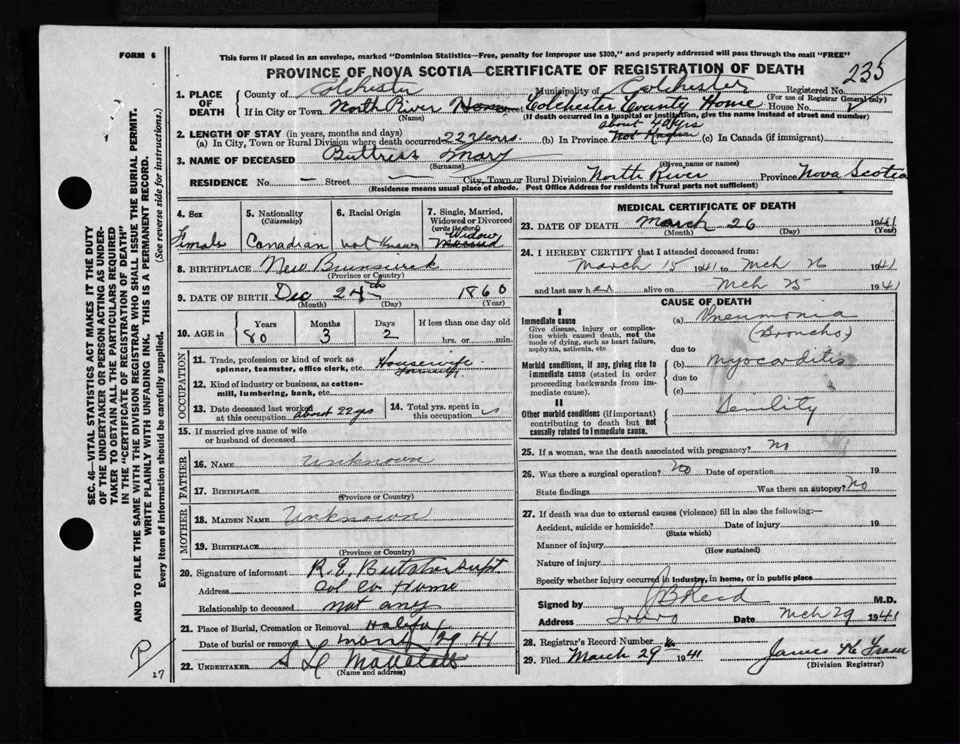 FORM 6
This form if placed in an envelope, marked "Dominion Statistics—Free, penalty for improper use $300," and properly addressed will pass through the mail "FREE"
PROVINCE OF NOVA SCOTIA—CERTIFICATE OF REGISTRATION OF DEATH
235
1. PLACE OF DEATH
County of Colchester Municipality of Colchester Registered No.
(For use of Registrar General only)
If in City or Town North River Colchester County Home House No.
(Name) (If death occurred in a hospital or institution, give the name instead of street and number)
2. LENGTH OF STAY (in years, months and days)
about 40 yrs
(a) In City, Town or Rural Division where death occurred 22 years. (b) In Province Not Known (c) In Canada (if immigrant)
3. NAME OF DECEASED Buttress Mary
(Surname) (Given name or names)
RESIDENCE No. — Street — City, Town or Rural Division North River Province Nova Scotia
(Residence means usual place of abode. Post Office Address for residents in rural parts not sufficient)
SEC. 46—VITAL STATISTICS ACT MAKES IT THE DUTY
OF THE UNDERTAKER OR PERSON ACTING AS UNDER-
TAKER TO OBTAIN ALL THE PARTICULARS REQUIRED
IN THE "CERTIFICATE OF REGISTRATION OF DEATH"
AND TO FILE THE SAME WITH THE DIVISION REGISTRAR WHO SHALL ISSUE THE BURIAL PERMIT.
WRITE PLAINLY WITH UNFADING INK. THIS IS A PERMANENT RECORD.
Every item of information should be carefully supplied. (See reverse side for instructions.)
4. Sex
Female
5. Nationality
(Citizenship)
Canadian
6. Racial Origin
not Known
7. Single, Married,
Widowed or Divorced
(write the word)
Widow
Married
8. BIRTHPLACE New Brunswick
(Province or Country)
9. DATE OF BIRTH Dec 24th 1860
(Month) (Day) (Year)
10. AGE in Years Months Days If less than one day old
80 3 2 hrs. or min.
OCCUPATION
11. Trade, profession or kind of work as
spinner, teamster, office clerk, etc. Housewife
12. Kind of industry or business, as cotton-
mill, lumbering, bank, etc.
13. Date deceased last worked
at this occupation about 22 yrs
14. Total yrs. spent in
this occupation
15. If married give name of wife
or husband of deceased
FATHER
16. NAME Unknown
17. BIRTHPLACE
(Province or Country)
MOTHER
18. MAIDEN NAME Unknown
19. BIRTHPLACE
(Province or Country)
20. Signature of informant R. E. Supt
Address Col Co Home
Relationship to deceased not any
21. Place of Burial, Cremation or Removal Halifax
Date of burial or removal 29 41
22. UNDERTAKER
(Name and address)
P
27
MEDICAL CERTIFICATE OF DEATH
23. DATE OF DEATH March 26 1941
(Month) (Day) (Year)
24. I HEREBY CERTIFY that I attended deceased from:
March 15 1941 to Mch 26 1941
and last saw her alive on Mch 25 1941
CAUSE OF DEATH
I
Immediate cause
Give disease, injury or complica-
tion which caused death, not the
mode of dying, such as heart failure,
asphyxia, asthenia, etc
(a) Pneumonia
(Broncho)
due to
Morbid conditions, if any, giving rise to
immediate cause (stated in order
proceeding backwards from im-
mediate cause).
(b) Myocarditis
due to
(c)
II
Other morbid conditions (if important)
contributing to death but not
causally related to immediate cause.
Senility
25. If a woman, was the death associated with pregnancy? No
26. Was there a surgical operation? No Date of operation 19
State findings Was there an autopsy? No
27. If death was due to external causes (violence) fill in also the following:—
Accident, suicide or homicide? Date of injury 19
(State which)
Manner of injury
(How sustained)
Nature of injury
Specify whether injury occurred in industry, in home, or in public place
Signed by J B Reid M.D.
Address Truro Date Mch 29 1941
28. Registrar's Record Number
29. Filed March 29th 1941 James
(Division Registrar)